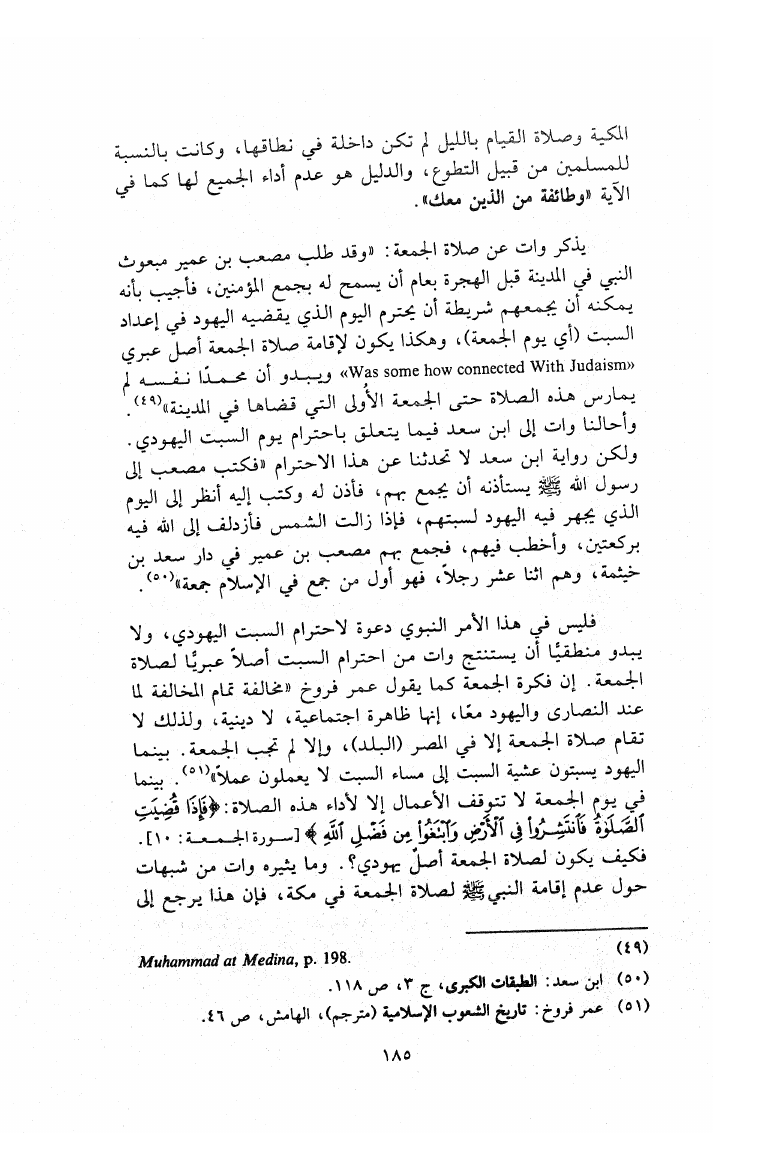 المكية وصلاة القيام بالليل لم تكن داخلة في نطاقها، وكانت بالنسبة
للمسلمين من قبيل التطوع، والدليل هو عدم أداء الجميع لها كما في
الآية «وطائفة من الذين معك».
يذكر وات عن صلاة الجمعة: «وقد طلب مصعب بن عمير مبعوث
النبي في المدينة قبل الهجرة بعام أن يسمح له بجمع المؤمنين، فأجيب بأنه
يمكنه أن يجمعهم شريطة أن يحترم اليوم الذي يقضيه اليهود في إعداد
السبت (أي يوم الجمعة)، وهكذا يكون لإقامة صلاة الجمعة أصل عبري
«Was some how connected With Judaism» ويبدو أن محمدًا نفسه لم
يمارس هذه الصلاة حتى الجمعة الأولى التي قضاها في المدينة»(٤٩).
وأحالنا وات إلى ابن سعد فيما يتعلق باحترام يوم السبت اليهودي.
ولكن رواية ابن سعد لا تحدثنا عن هذا الاحترام «فكتب مصعب إلى
رسول الله ﷺ يستأذنه أن يجمع بهم، فأذن له وكتب إليه أنظر إلى اليوم
الذي يجهر فيه اليهود لسبتهم، فإذا زالت الشمس فأزدلف إلى الله فيه
بركعتين، وأخطب فيهم، فجمع بهم مصعب بن عمير في دار سعد بن
خيثمة، وهم اثنا عشر رجلاً، فهو أول من جمع في الإسلام جمعة»(٥٠).
فليس في هذا الأمر النبوي دعوة لاحترام السبت اليهودي، ولا
يبدو منطقيًا أن يستنتج وات من احترام السبت أصلاً عبريًا لصلاة
الجمعة. إن فكرة الجمعة كما يقول عمر فروخ «مخالفة تمام المخالفة لما
عند النصارى واليهود معًا، إنها ظاهرة اجتماعية، لا دينية، ولذلك لا
تقام صلاة الجمعة إلا في المصر (البلد)، وإلا لم تجب الجمعة. بينما
اليهود يسبتون عشية السبت إلى مساء السبت لا يعملون عملاً»(٥١). بينما
في يوم الجمعة لا تتوقف الأعمال إلا لأداء هذه الصلاة: ﴿فَإِذَا قُضِيَتِ
ٱلصَّلَوٰةُ فَٱنتَشِرُوا۟ فِى ٱلْأَرْضِ وَٱبْتَغُوا۟ مِن فَضْلِ ٱللَّهِ﴾ [سورة الجمعة: ١٠].
فكيف يكون لصلاة الجمعة أصلٌ يهودي؟. وما يثيره وات من شبهات
حول عدم إقامة النبي ﷺ لصلاة الجمعة في مكة، فإن هذا يرجع إلى
(٤٩) Muhammad at Medina, p. 198.
(٥٠) ابن سعد: الطبقات الكبرى، ج ٣، ص ١١٨.
(٥١) عمر فروخ: تاريخ الشعوب الإسلامية (مترجم)، الهامش، ص ٤٦.
١٨٥